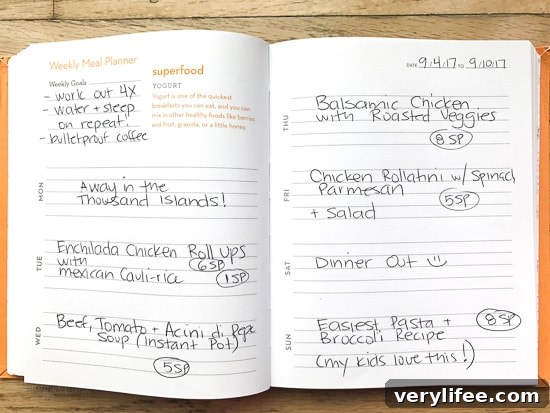 Weekly Meal Planner
Weekly Goals
- work out 4X
- water + sleep
on repeat!
- bulletproof coffee
superfood
YOGURT
Yogurt is one of the quickest
breakfasts you can eat, and you can
mix in other healthy foods like berries
and fruit, granola, or a little honey.
MON
Away in the
Thousand Islands!
TUE
Enchilada Chicken Roll Ups
6 SP
with
mexican Cauli-rice
1 SP
WED
Beef, Tomato + Acini di Pepe
Soup (Instant Pot)
5 SP
DATE 9/4/17 TO 9/10/17
THU
Balsamic Chicken
with Roasted Veggies
8 SP
FRI
Chicken Rollatini w/ Spinach
Parmesan
5 SP
+ Salad
SAT
Dinner Out
SUN
Easiest Pasta +
8 SP
Broccoli Recipe
(my kids love this!)
verylifee.com